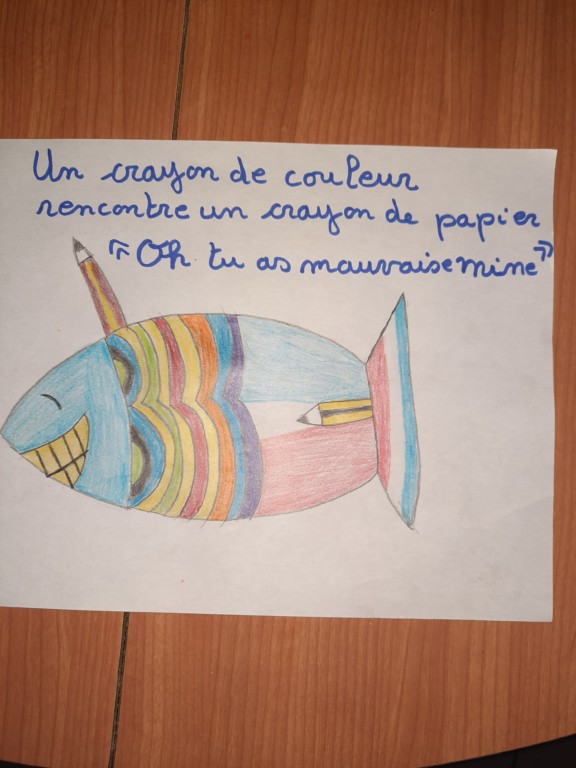 Un crayon de couleur
rencontre un crayon de papier
« Oh tu as mauvaise mine »